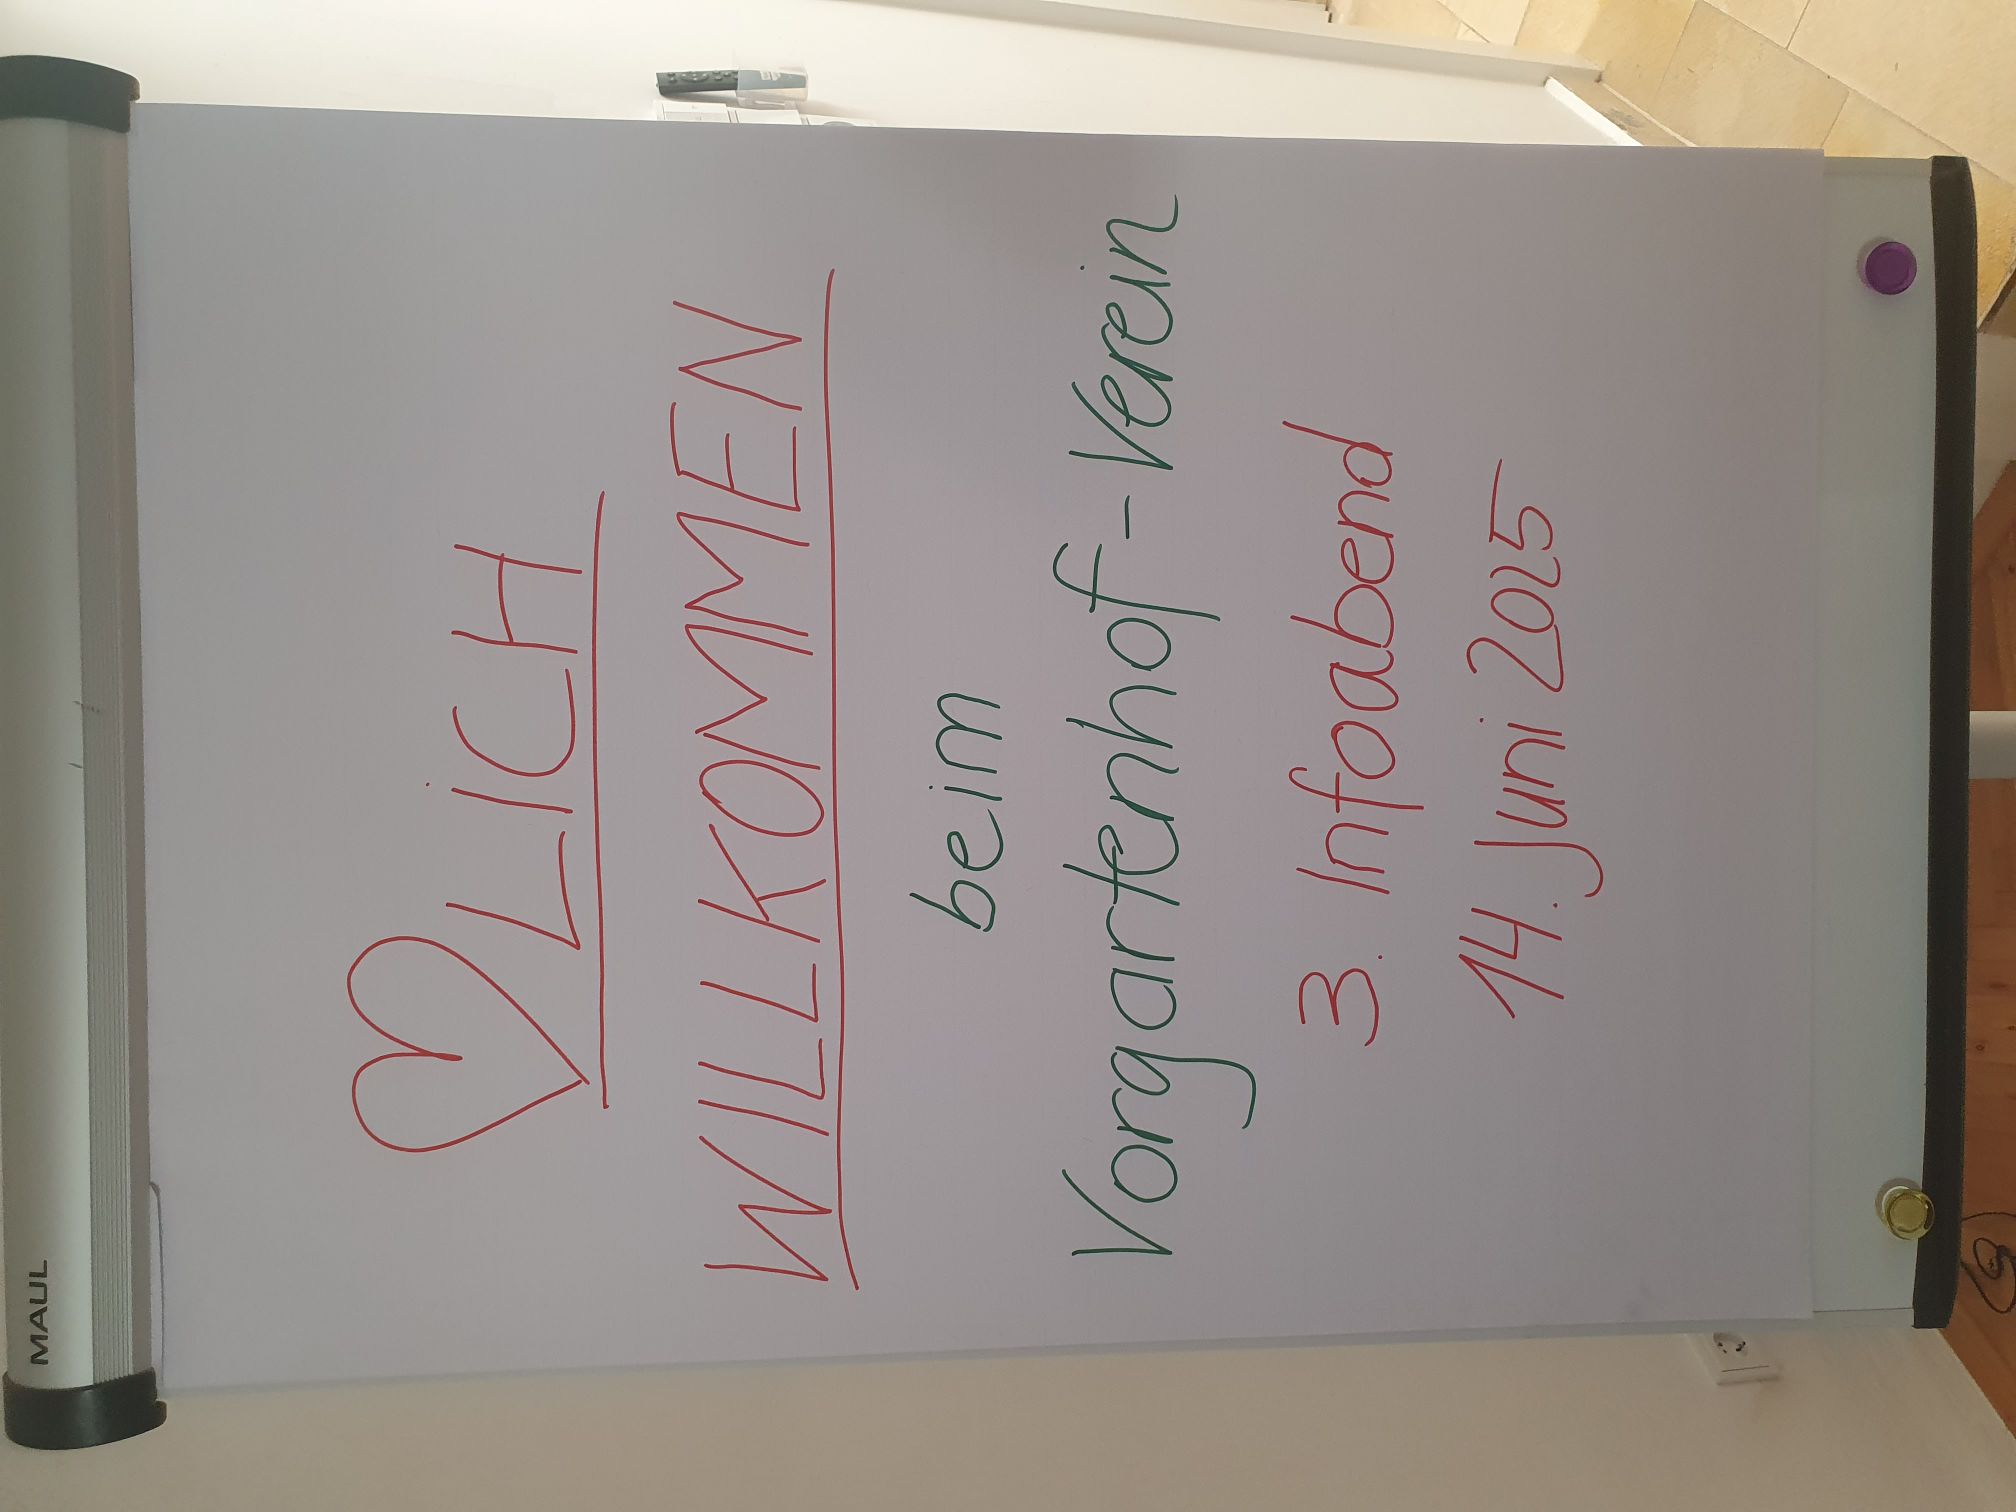 MAUL
♡LiCH
WILLKOMMEN
beim
Vorgartenhof-Verein
3. Infoabend
14. Juni 2025